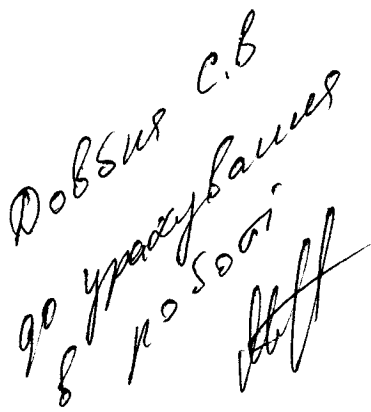 Довбня С.В
до урахування
в роботі